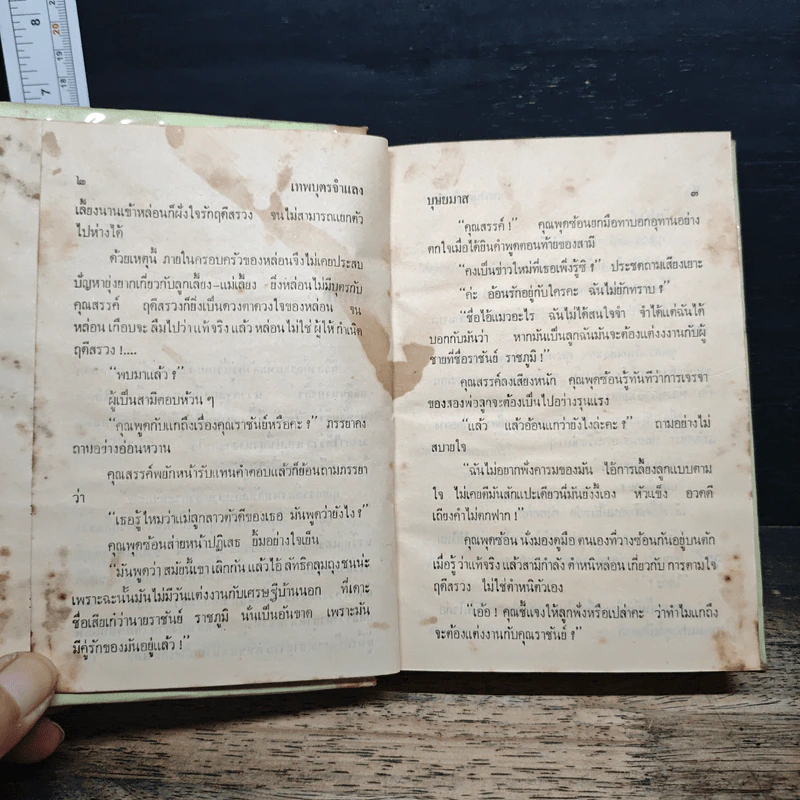 8
20
19
18
7
๒
เทพบุตรจำแลง
เลี้ยงนานเข้าหล่อนก็ฝังใจรักฤดีสรวง จนไม่สามารถแยกตัว
ไปห่างได้
ด้วยเหตุนี้ ภายในครอบครัวของหล่อนจึงไม่เคยประสบ
ปัญหายุ่งยากเกี่ยวกับลูกเลี้ยง–แม่เลี้ยง ยิ่งหล่อนไม่มีบุตรกับ
คุณสรรค์ ฤดีสรวงก็ยิ่งเป็นดวงตาดวงใจของหล่อน จน
หล่อนเกือบจะลืมไปว่าแท้จริงแล้วหล่อนไม่ใช่ผู้ให้กำเนิด
ฤดีสรวง !....
“พบมาแล้ว ?”
ผู้เป็นสามีตอบห้วน ๆ
“คุณพูดกับแกถึงเรื่องคุณราชันย์หรือคะ ?” ภรรยาคง
ถามอย่างอ่อนหวาน
คุณสรรค์พยักหน้ารับแทนคำตอบแล้วก็ย้อนถามภรรยา
ว่า
“เธอรู้ไหมว่าแม่ลูกสาวตัวดีของเธอ มันพูดว่ายังไง ?”
คุณพุดซ้อนส่ายหน้าปฏิเสธ ยิ้มอย่างใจเย็น
“มันพูดว่า สมัยนี้เขาเลิกกันแล้วไอ้ลัทธิคลุมถุงชนน่ะ
เพราะฉะนั้นมันไม่มีวันแต่งงานกับเศรษฐีบ้านนอก ที่เตาะ
ชื่อเสียเก๋ว่านายราชันย์ ราชภูมิ นั่นเป็นอันขาด เพราะมัน
มีคู่รักของมันอยู่แล้ว !”
บุษยมาส
๓
“คุณสรรค์ !” คุณพุดซ้อนยกมือทาบอกอุทานอย่าง
ตกใจเมื่อได้ยินคำพูดตอนท้ายของสามี
“คงเป็นข่าวใหม่ที่เธอเพิ่งรู้ซิ ?” ประชดถามเสียงเยาะ
“ค่ะ อ้อนรักอยู่กับใครคะ ฉันไม่ยักทราบ ?”
“ชื่อไอ้แมวอะไร ฉันไม่ได้สนใจจำ จำได้แต่ฉันได้
บอกกับมันว่า หากมันเป็นลูกฉันมันจะต้องแต่งงานกับผู้
ชายที่ชื่อราชันย์ ราชภูมิ !”
คุณสรรค์ลงเสียงหนัก คุณพุดซ้อนรู้ทันทีว่าการเจรจา
ของสองพ่อลูกจะต้องเป็นไปอย่างรุนแรง
“แล้ว แล้วอ้อนแกว่ายังไงล่ะคะ ?” ถามอย่างไม่
สบายใจ
“ฉันไม่อยากฟังคารมของมัน ไอ้การเลี้ยงลูกแบบตาม
ใจ ไม่เคยตีมันสักแปะเดียวนี่มันยังงี้เอง หัวแข็ง อวดดี
เถียงคำไม่ตกฟาก !”
คุณพุดซ้อน นั่งมองดูมือ ตนเองที่วางซ้อนกันอยู่บนตัก
เมื่อรู้ว่าแท้จริงแล้วสามีกำลัง ตำหนิหล่อน เกี่ยวกับการตามใจ
ฤดีสรวง ไม่ใช่ตำหนิตัวเอง
“เอ้อ ! คุณชี้แจงให้ลูกฟังหรือเปล่าคะ ว่าทำไมแกถึง
จะต้องแต่งงานกับคุณราชันย์ ?”